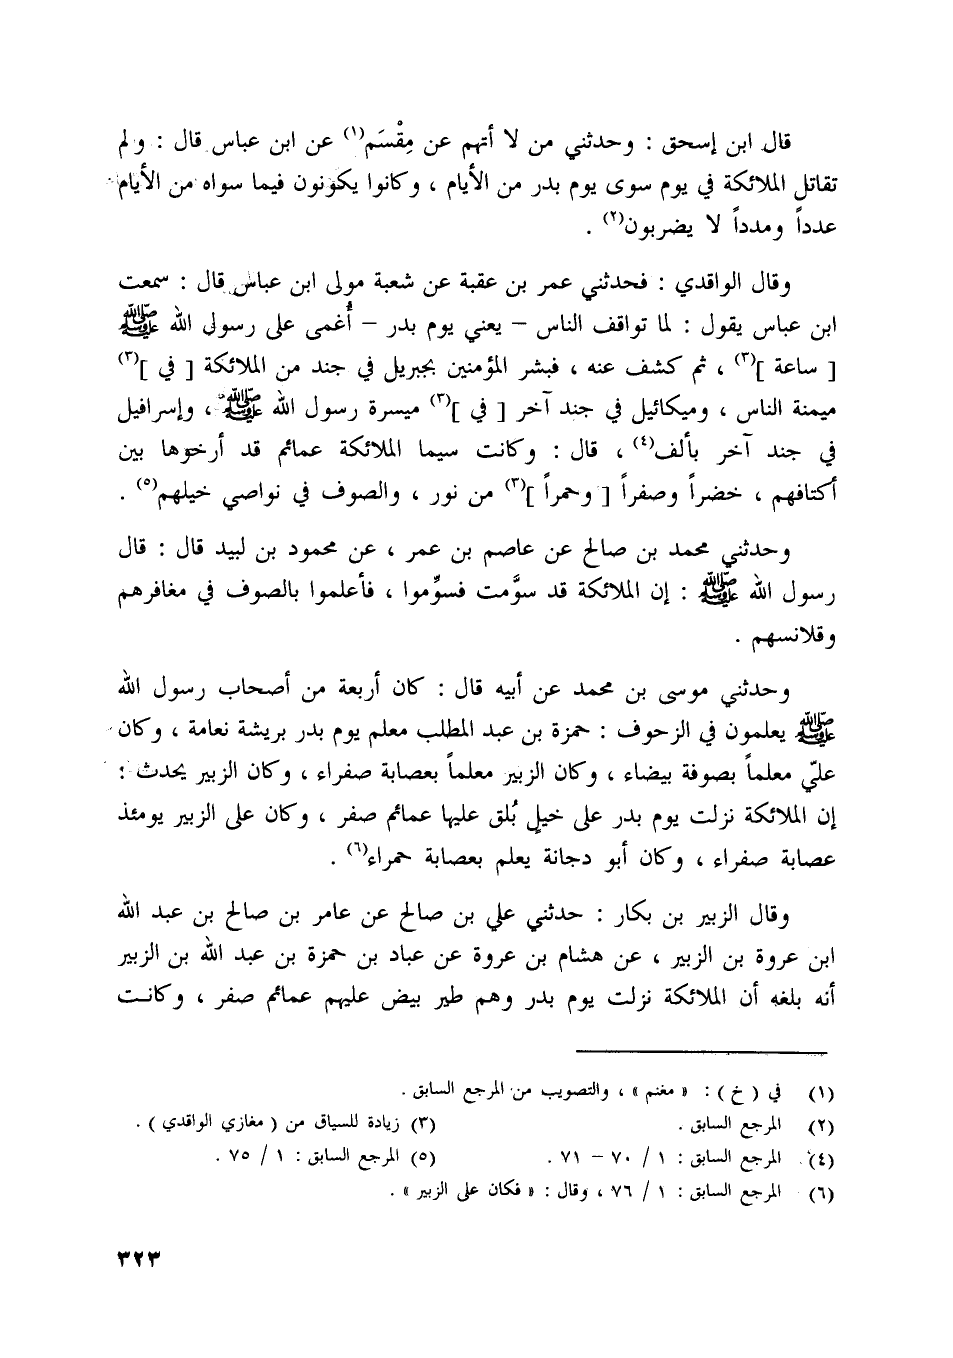 قال ابن إسحق : وحدثني من لا أتهم عن مِقْسَم(١) عن ابن عباس قال : ولم
تقاتل الملائكة في يوم سوى يوم بدر من الأيام ، وكانوا يكونون فيما سواه من الأيام
عدداً ومدداً لا يضربون(٢) .
وقال الواقدي : فحدثني عمر بن عقبة عن شعبة مولى ابن عباس قال : سمعت
ابن عباس يقول : لما تواقف الناس – يعني يوم بدر – أُغمى على رسول الله ﷺ
[ ساعة ](٣) ، ثم كشف عنه ، فبشر المؤمنين بجبريل في جند من الملائكة [ في ](٣)
ميمنة الناس ، وميكائيل في جند آخر [ في ](٣) ميسرة رسول الله ﷺ ، وإسرافيل
في جند آخر بألف(٤) ، قال : وكانت سيما الملائكة عمائم قد أرخوها بين
أكتافهم ، خضراً وصفراً [ وحمراً ](٣) من نور ، والصوف في نواصي خيلهم(٥) .
وحدثني محمد بن صالح عن عاصم بن عمر ، عن محمود بن لبيد قال : قال
رسول الله ﷺ : إن الملائكة قد سوَّمت فسوِّموا ، فأعلموا بالصوف في مغافرهم
وقلانسهم .
وحدثني موسى بن محمد عن أبيه قال : كان أربعة من أصحاب رسول الله
ﷺ يعلمون في الزحوف : حمزة بن عبد المطلب معلم يوم بدر بريشة نعامة ، وكان
عليّ معلماً بصوفة بيضاء ، وكان الزبير معلماً بعصابة صفراء ، وكان الزبير يحدث :
إن الملائكة نزلت يوم بدر على خيلٍ بُلق عليها عمائم صفر ، وكان على الزبير يومئذ
عصابة صفراء ، وكان أبو دجانة يعلم بعصابة حمراء(٦) .
وقال الزبير بن بكار : حدثني علي بن صالح عن عامر بن صالح بن عبد الله
ابن عروة بن الزبير ، عن هشام بن عروة عن عباد بن حمزة بن عبد الله بن الزبير
أنه بلغه أن الملائكة نزلت يوم بدر وهم طير بيض عليهم عمائم صفر ، وكانت
(١) في ( خ ) : « مغنم » ، والتصويب من المرجع السابق .
(٢) المرجع السابق . (٣) زيادة للسياق من ( مغازي الواقدي ) .
(٤) المرجع السابق : ١ / ٧٠ – ٧١ . (٥) المرجع السابق : ١ / ٧٥ .
(٦) المرجع السابق : ١ / ٧٦ ، وقال : « فكان على الزبير » .
٣٢٣